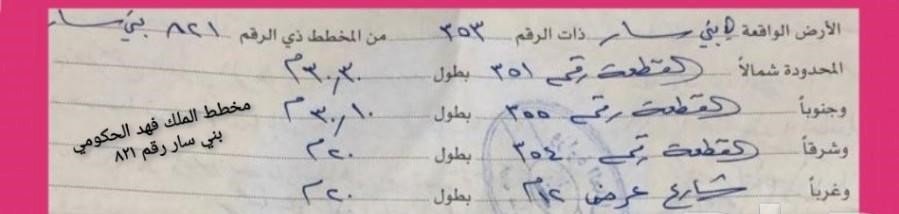 الأرض الواقعة في بني سار ذات الرقم ٣٥٣ من المخطط ذي الرقم ٨٢١ بني سار
المحدودة شمالاً القطعة رقم ٣٥١ بطول ٣٠,٣٠م
وجنوباً القطعة رقم ٣٥٥ بطول ٣٠,١٠م
وشرقاً القطعة رقم ٣٥٤ بطول ٢٠م
وغرباً شارع عرض ١٢م بطول ٢٠م
مخطط الملك فهد الحكومي
بني سار رقم ٨٢١